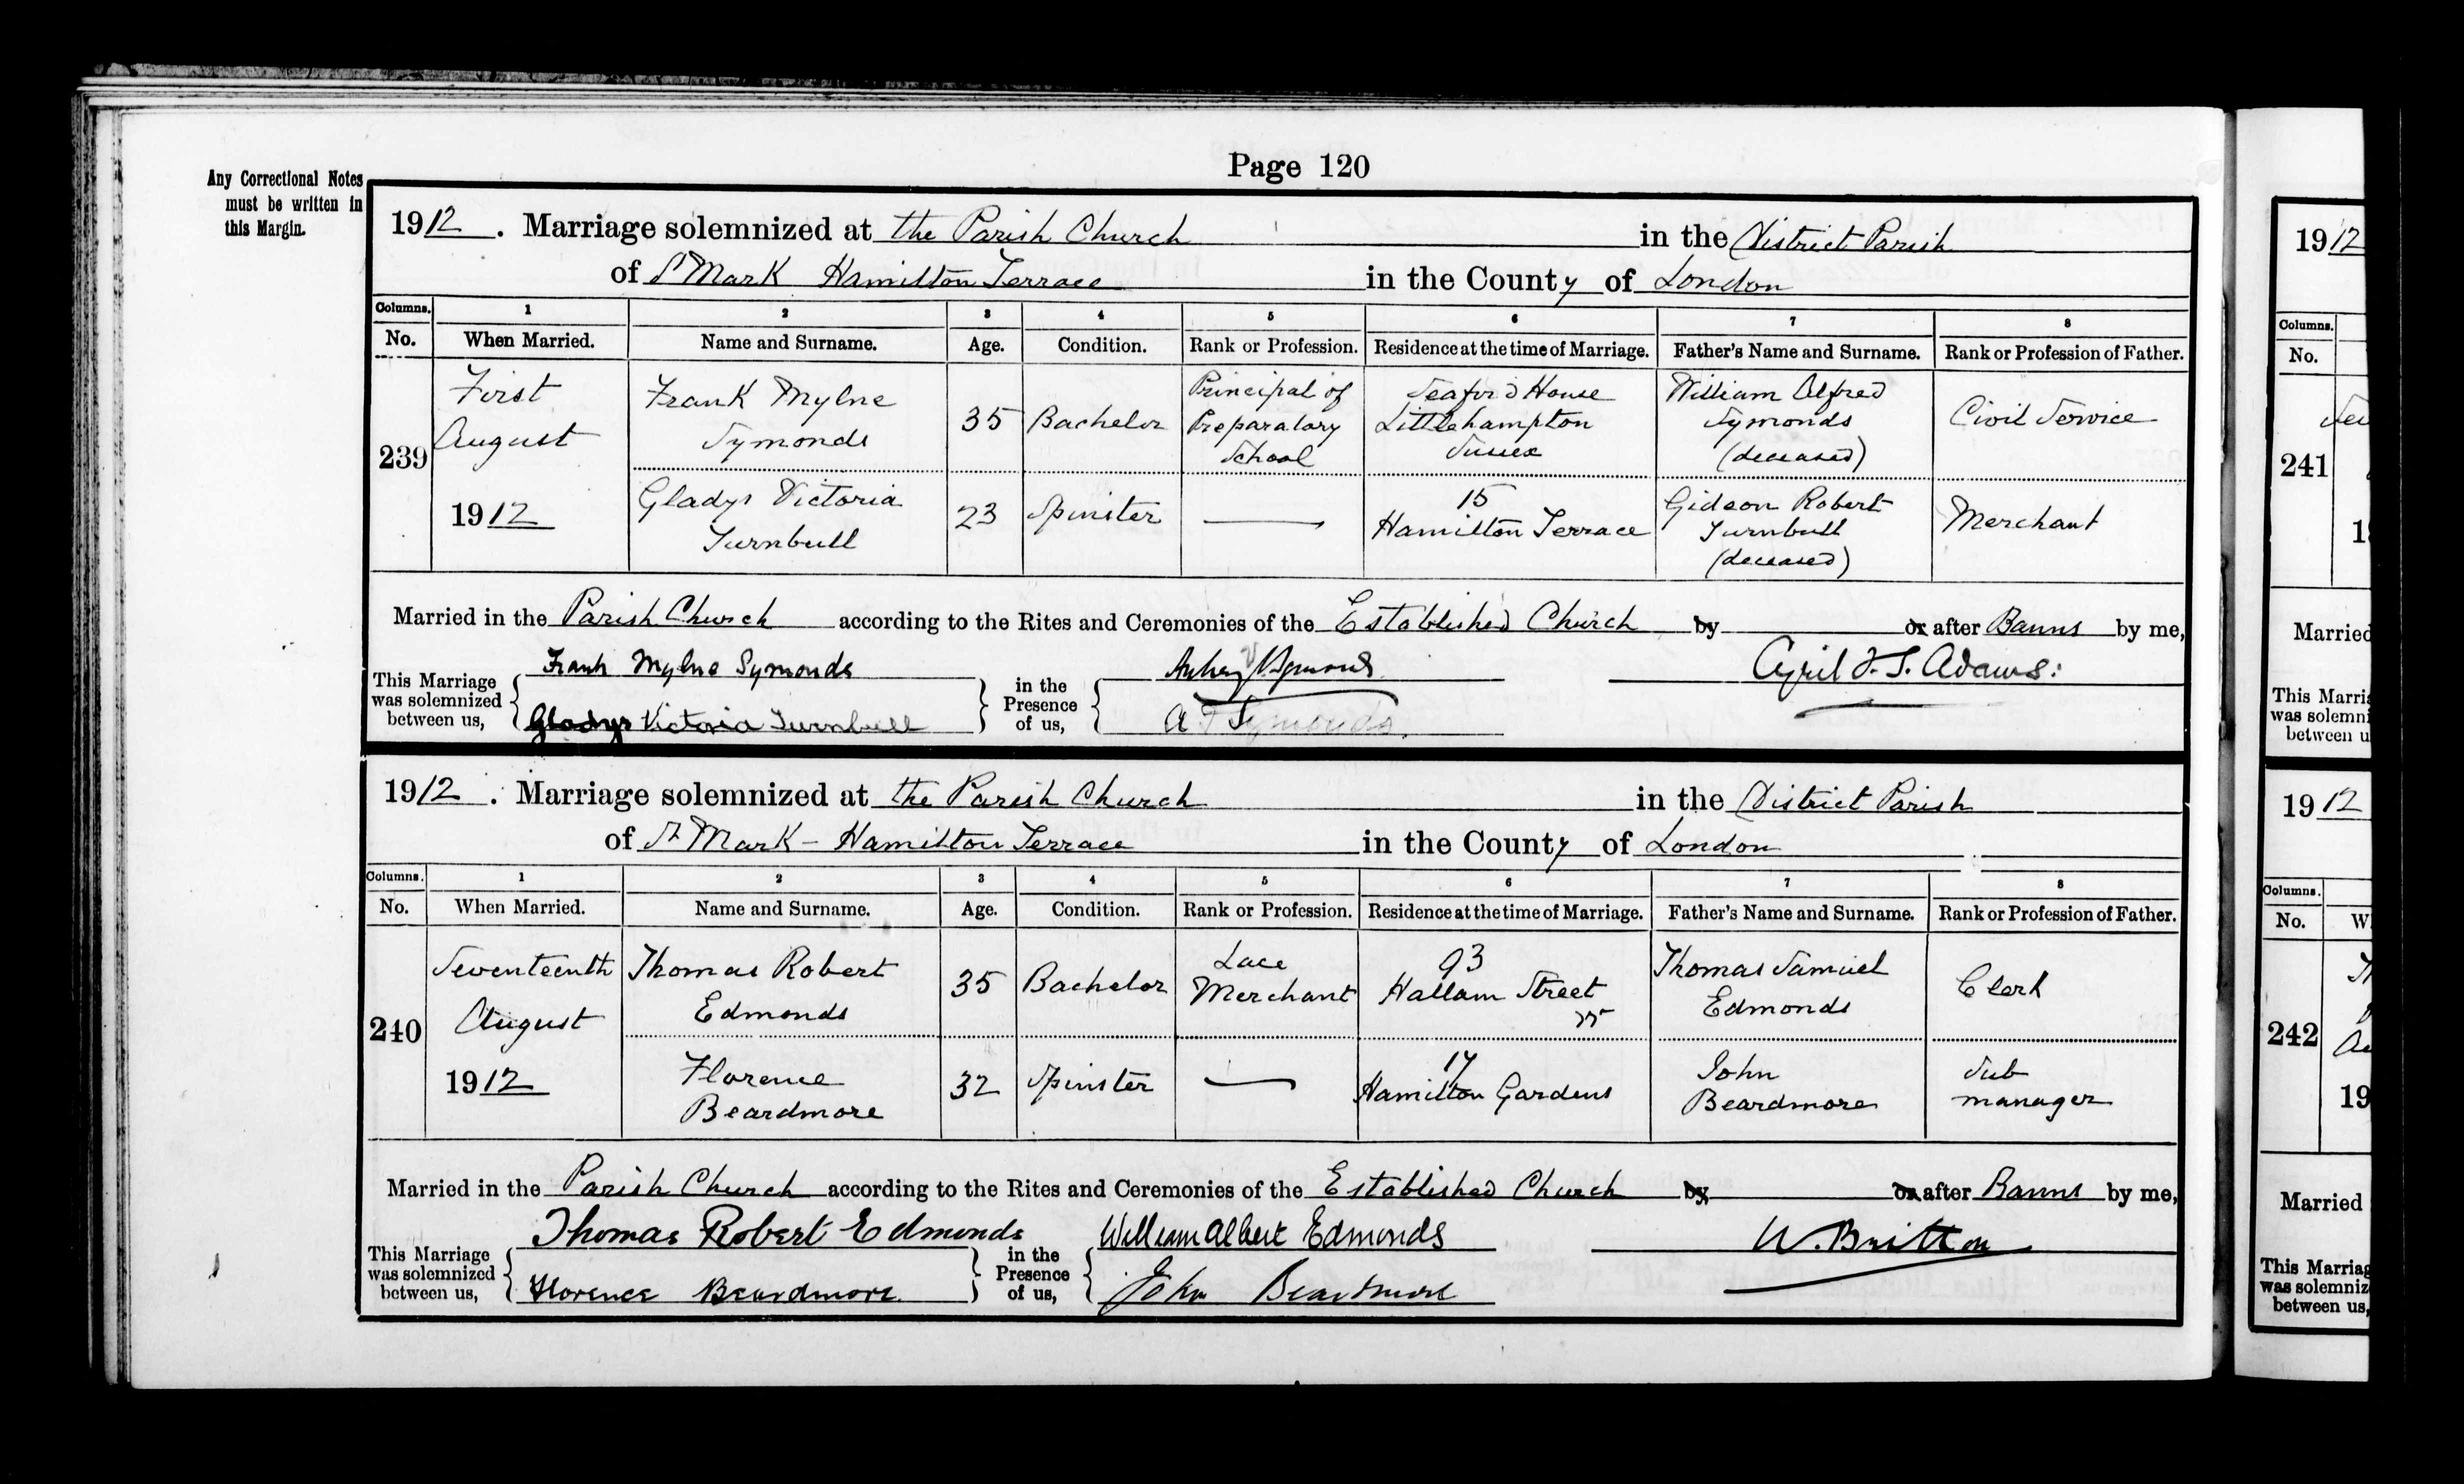 Page 120
Any Correctional Notes
must be written in
this Margin.
1912. Marriage solemnized at the Parish Church in the District Parish
of St Mark Hamilton Terrace in the County of London
Columns. 1 2 3 4 5 6 7 8
No. When Married. Name and Surname. Age. Condition. Rank or Profession. Residence at the time of Marriage. Father's Name and Surname. Rank or Profession of Father.
239
First
August
1912
Frank Mylne
Symonds
35
Bachelor
Principal of
Preparatory
School
Seaford House
Littlehampton
Sussex
William Alfred
Symonds
(deceased)
Civil Service
Gladys Victoria
Turnbull
23
Spinster
15
Hamilton Terrace
Gideon Robert
Turnbull
(deceased)
Merchant
Married in the Parish Church according to the Rites and Ceremonies of the Established Church by or after Banns by me,
This Marriage
was solemnized
between us,
Frank Mylne Symonds
Gladys Victoria Turnbull
in the
Presence
of us,
Symonds
A Symonds.
Cyril F. S. Adams:
1912. Marriage solemnized at the Parish Church in the District Parish
of St Mark - Hamilton Terrace in the County of London
Columns. 1 2 3 4 5 6 7 8
No. When Married. Name and Surname. Age. Condition. Rank or Profession. Residence at the time of Marriage. Father's Name and Surname. Rank or Profession of Father.
240
Seventeenth
August
1912
Thomas Robert
Edmonds
35
Bachelor
Lace
Merchant
93
Hallam Street
Thomas Samuel
Edmonds
Clerk
Florence
Beardmore
32
Spinster
17
Hamilton Gardens
John
Beardmore
Sub
manager
Married in the Parish Church according to the Rites and Ceremonies of the Established Church by or after Banns by me,
This Marriage
was solemnized
between us,
Thomas Robert Edmonds
Florence Beardmore
in the
Presence
of us,
William Albert Edmonds
John Beardmore
W. Britton
1912
Columns.
No.
241
Married
This Marria
was solemni
between u
1912
Columns.
No. W
242
19
Married
This Marriag
was solemniz
between us,